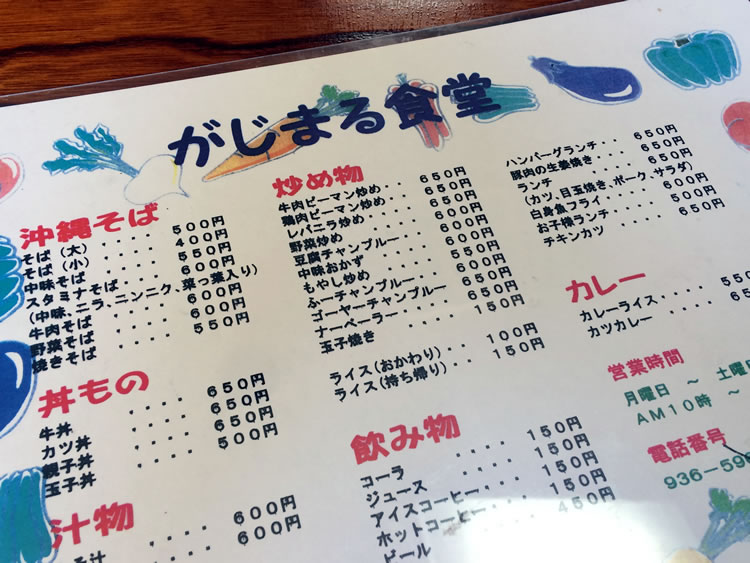 がじまる食堂
沖縄そば
そば(大) ‥‥ 500円
そば(小) ‥‥ 400円
中味そば ‥‥ 550円
スタミナそば ‥‥ 600円
(中味、ニラ、ニンニク、菜っ葉入り)
牛肉そば ‥‥ 600円
野菜そば ‥‥ 600円
焼きそば ‥‥ 550円
丼もの
牛丼 ‥‥ 650円
カツ丼 ‥‥ 650円
親子丼 ‥‥ 650円
玉子丼 ‥‥ 500円
汁物
汁 ‥‥ 600円
600円
炒め物
牛肉ピーマン炒め ‥ 650円
鶏肉ピーマン炒め ‥ 650円
レバニラ炒め ‥‥ 650円
野菜炒め ‥‥
豆腐チャンプルー ‥
中味おかず ‥‥
もやし炒め ‥‥
ふーチャンプルー ‥
ゴーヤーチャンプルー
ナーベーラー ‥‥
玉子焼き ‥‥
ライス(おかわり) ‥ 100円
ライス(持ち帰り) ‥ 150円
飲み物
コーラ ‥‥ 150円
ジュース ‥‥ 150円
アイスコーヒー ‥‥ 150円
ホットコーヒー ‥‥ 150円
ビール ‥‥ 450円
ハンバーグランチ ‥ 650円
豚肉の生姜焼き ‥ 650円
ランチ ‥‥ 650円
(カツ、目玉焼き、ポーク、サラダ)
白身魚フライ ‥‥ 600円
お子様ランチ ‥‥ 500円
チキンカツ ‥‥ 650円
カレー
カレーライス ‥‥ 550
カツカレー ‥‥ 65
営業時間
月曜日 ～ 土曜
AM10時 ～
電話番号
936-59